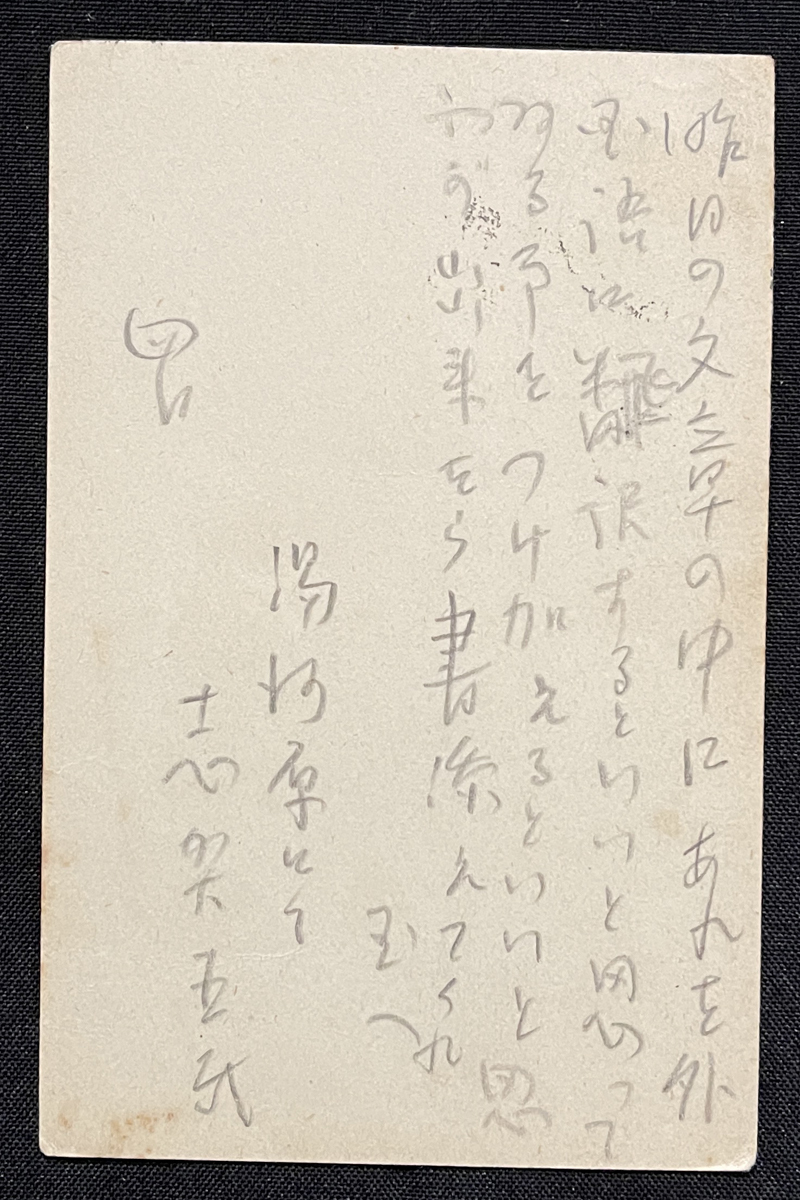 昨日の文章の中にあれを外
国語に飜訳するといいと思って
ゐる事をつけ加えるといいと思
ふが出来たら書添えてくれ
玉へ
湯河原にて
志賀直哉